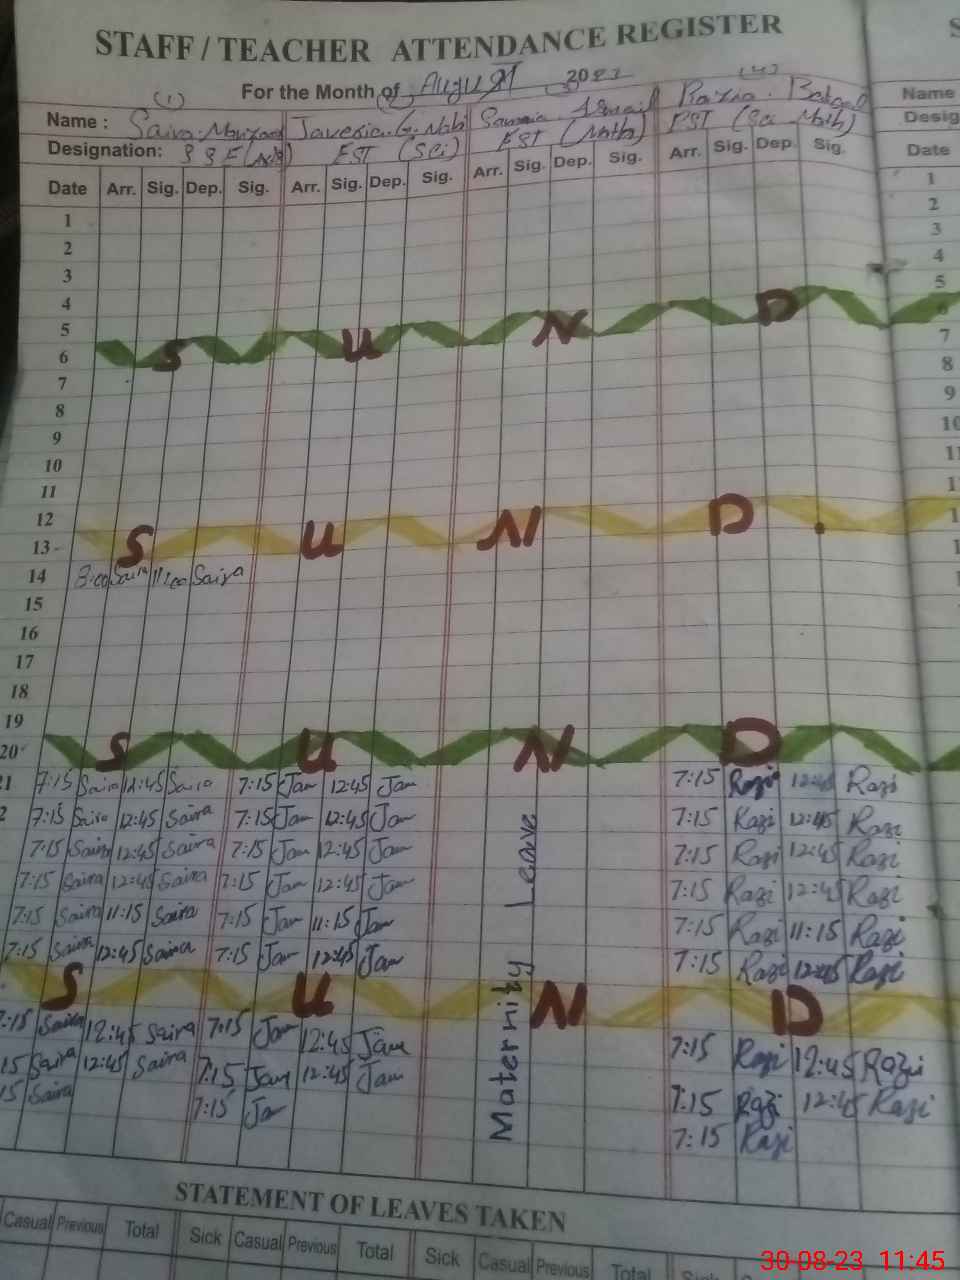 STAFF / TEACHER ATTENDANCE REGISTER
For the Month of August 2023
(1) (2) (4)
Name : Saira Javeria G. Nabi Ismail Name
Designation: EST (Sci) EST (Math) PST (Sci Math) Desig
Date Arr. Sig. Dep. Sig. Arr. Sig. Dep. Sig. Arr. Sig. Dep. Sig. Arr. Sig. Dep. Sig. Date
1 1
2 2
3 3
4 4
5 5
6 S U N D 6
7 7
8 8
9 9
10 10
11 11
12
13 S U N D .
14 8:00 Saira 11:00 Saira
15
16
17
18
19
20 S U N D
21 7:15 Saira 12:45 Saira 7:15 Jam 12:45 Jam 7:15 Razi 12:45 Razi
2 7:15 Saira 12:45 Saira 7:15 Jam 12:45 Jam 7:15 Razi 12:45 Razi
7:15 Saira 12:45 Saira 7:15 Jam 12:45 Jam 7:15 Razi 12:45 Razi
7:15 Saira 12:45 Saira 7:15 Jam 12:45 Jam 7:15 Razi 12:45 Razi
7:15 Saira 11:15 Saira 7:15 Jam 11:15 Jam 7:15 Razi 11:15 Razi
7:15 Saira 12:45 Saira 7:15 Jam 12:45 Jam 7:15 Razi 12:45 Razi
S U N D
7:15 Saira 12:45 Saira 7:15 Jam 12:45 Jam 7:15 Razi 12:45 Razi
15 Saira 12:45 Saira 7:15 Jam 12:45 Jam 7:15 Razi 12:45 Razi
15 Saira 7:15 Ja 7:15 Razi
Maternity Leave
STATEMENT OF LEAVES TAKEN
Casual Previous Total Sick Casual Previous Total Sick Casual Previous Total Sick
30-08-23 11:45